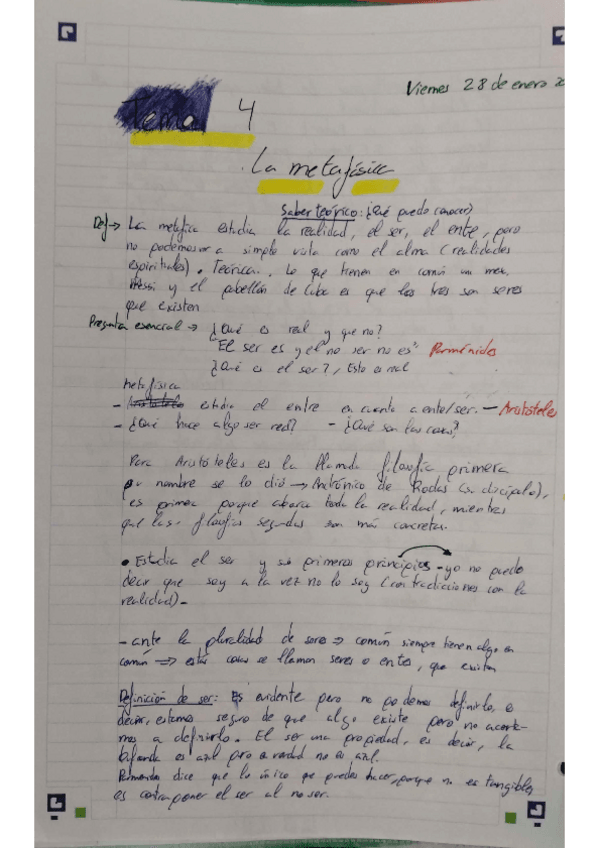 Viernes 28 de enero
Tema 4
La metafísica
Saber teórico: ¿Qué puedo conocer?
Def → La metafísica estudia la realidad, el ser, el ente, pero
no podemos a simple vista como el alma (realidades
espirituales). Teórica. Lo que tienen en común un mesa,
Messi y el pabellón de Cuba es que los tres son seres
que existen
Pregunta esencial → ¿Qué es real y que no?
"El ser es y el no ser no es" Parménides
¿Qué es el ser?, Esto es real
Metafísica
- estudia el entre en cuanto a ente/ser. - Aristóteles
- ¿Qué hace algo ser real? - ¿Qué son las cosas?
Para Aristóteles es la llamada filosofía primera
su nombre se lo dió → Andrónico de Rodas (su discípulo),
es primera porque abarca toda la realidad, mientras
que las filosofías segundas son más concretas.
• Estudia el ser y sus primeros principios - yo no puedo
decir que soy a la vez no lo soy (contradicciones con la
realidad) -
- ante la pluralidad de seres ⇒ común siempre tienen algo en
común ⇒ estas cosas se llaman seres o entes, que existen
Definición de ser: Es evidente pero no podemos definirlo, es
decir, estamos seguro de que algo existe pero no acerta-
mos a definirlo. El ser una propiedad, es decir, la
bufanda es azul pero a verdad no es azul.
dice que lo único que puedes hacer, porque no es tangible,
es contraponer el ser al no ser.